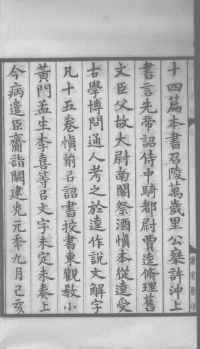 十四篇本書召陵萬歲里公乘許沖上
書言先帝詔侍中騎都尉賈逵修理舊
文臣父故大尉南閣祭酒慎本從逵受
古學博問通人考之於逵作說文解字
凡十五卷慎前㠯詔書挍書東觀敎小
黃門孟生李喜等㠯文字未定未奏上
今病遣臣齎詣闕建光元年九月己亥